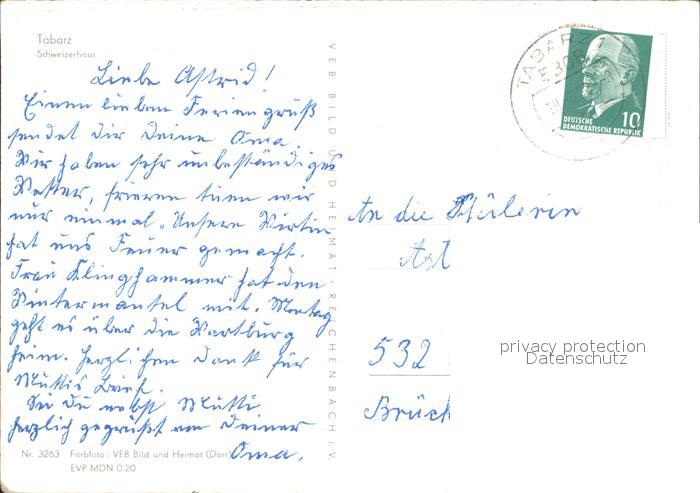 Tabarz
Schweizerhaus
Liebe Astrid!
Einen lieben Feriengruß
sendet dir Deine Oma.
Wir haben sehr unbeständiges
Wetter, frieren tuen wir
nur einmal. Unsere Wirtin
hat uns Feuer gemacht.
Frau Klinghammer hat den
Wintermantel mit. Montag
geht es über die Wartburg
heim. Herzlichen Dank für
Muttis Brief.
Sei Du nebst Mutti
herzlich gegrüßt von Deiner
Oma.
Nr. 3263 Farbfoto: VEB Bild und Heimat (Darr)
EVP MDN 0.20
VEB BILD UND HEIMAT REICHENBACH i. V.
TABARZ
DEUTSCHE
DEMOKRATISCHE REPUBLIK
10
An die Schülerin
Ast
532
Brück
privacy protection
Datenschutz